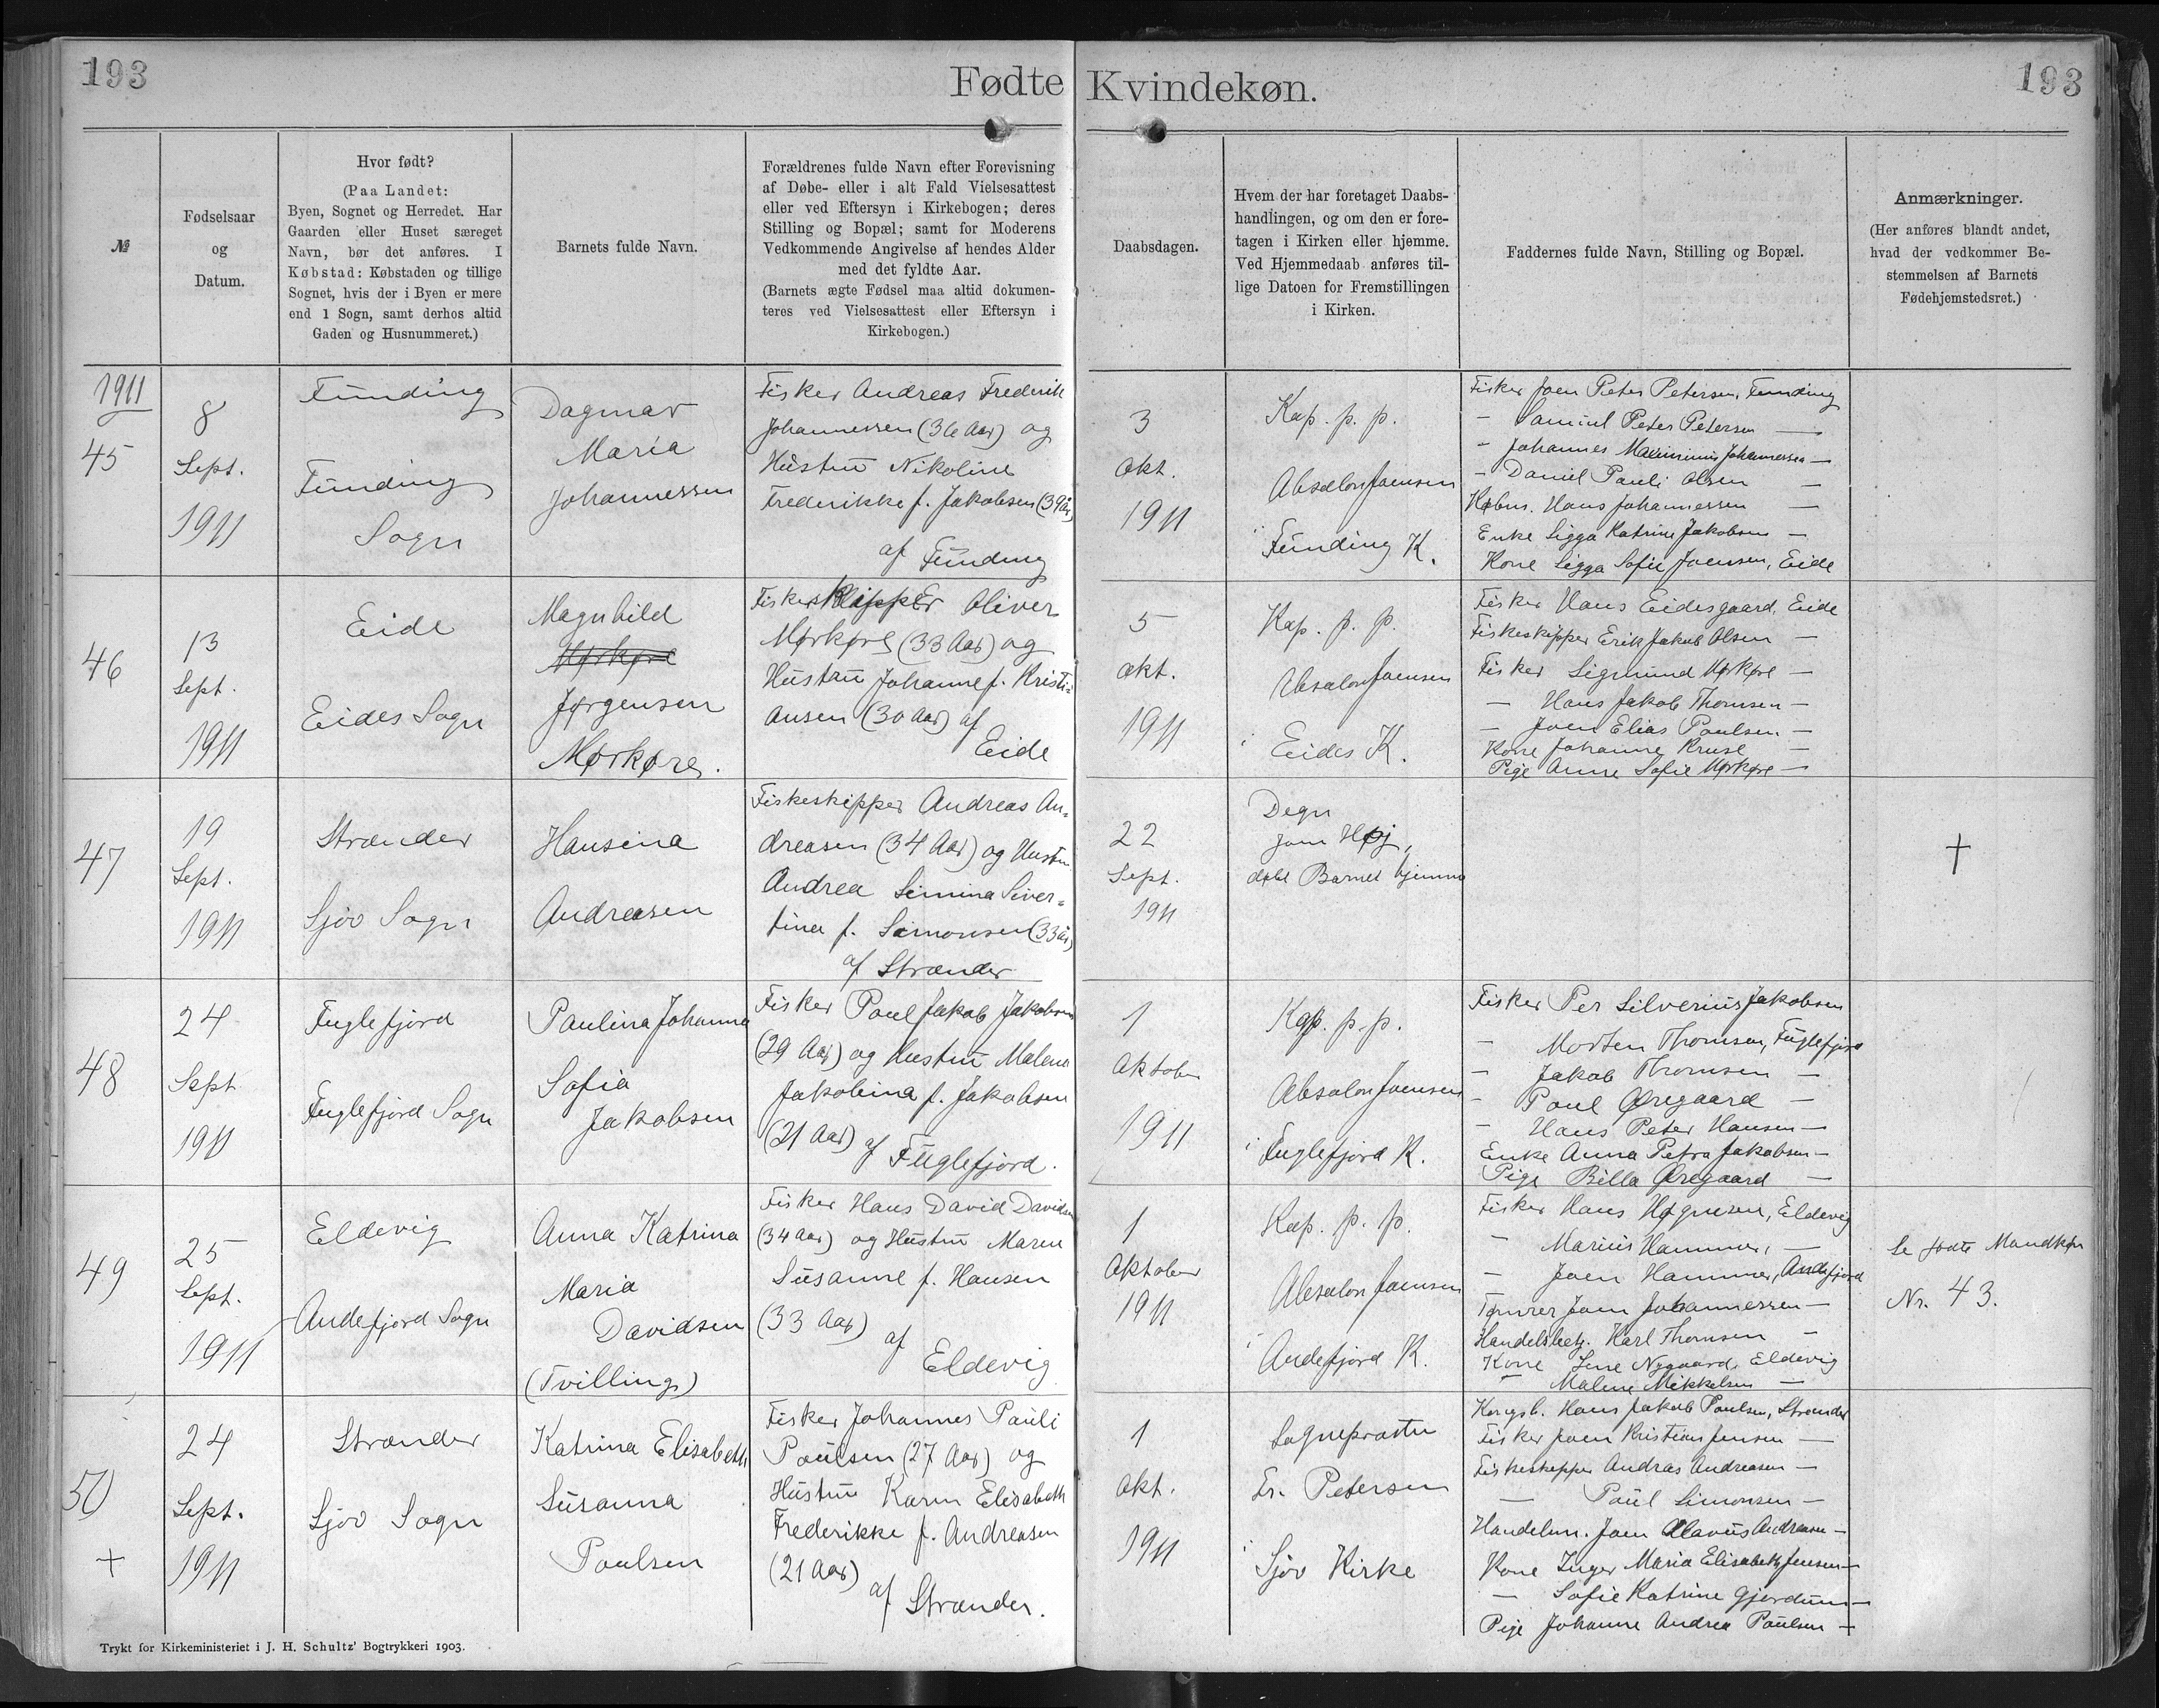 193
Fødte Kvindekøn.
193
№
Fødselsaar
og
Datum.
Hvor født?
(Paa Landet:
Byen, Sognet og Herredet. Har
Gaarden eller Huset særeget
Navn, bør det anføres. I
Købstad: Købstaden og tillige
Sognet, hvis der i Byen er mere
end 1 Sogn, samt derhos altid
Gaden og Husnummeret.)
Barnets fulde Navn.
Forældrenes fulde Navn efter Forevisning
af Døbe- eller i alt Fald Vielsesattest
eller ved Eftersyn i Kirkebogen; deres
Stilling og Bopæl; samt for Moderens
Vedkommende Angivelse af hendes Alder
med det fyldte Aar.
(Barnets ægte Fødsel maa altid dokumen-
teres ved Vielsesattest eller Eftersyn i
Kirkebogen.)
Daabsdagen.
Hvem der har foretaget Daabs-
handlingen, og om den er fore-
tagen i Kirken eller hjemme.
Ved Hjemmedaab anføres til-
lige Datoen for Fremstillingen
i Kirken.
Faddernes fulde Navn, Stilling og Bopæl.
Anmærkninger.
(Her anføres blandt andet,
hvad der vedkommer Be-
stemmelsen af Barnets
Fødehjemstedsret.)
1911
45
8
Sept.
1911
Funding
Funding
Sogn
Dagmar
Maria
Johannessen
Fisker Andreas Frederik
Johannessen (36 Aar) og
Hustru Nikoline
Frederikke f. Jakobsen (39 Aar)
af Funding
3
Okt.
1911
Kap. p. p.
Absalon Joensen
i Funding K.
Fisker Joen Peter Petersen, Funding
— Samuel Peter Petersen —
— Johannes Johannessen —
— Daniel Pauli Olsen —
Købm. Hans Johannessen —
Enke Sigga Katrine Jakobsen —
Kone Sigga Sofie Joensen, Eide
46
13
Sept.
1911
Eide
Eides Sogn
Magnhild
Mørkøre
Jørgensen
Mørkøre.
Fiskeskipper Oliver
Mørkøre (33 Aar) og
Hustru Johanne f. Kristi=
ansen (30 Aar) af
Eide
5
Okt.
1911
Kap. p. p.
Absalon Joensen
i Eides K.
Fisker Hans Eidesgaard, Eide
Fiskeskipper Erik Jakob Olsen —
Fisker Sigmund Mørkøre —
— Hans Jakob Thomsen —
— Joen Elias Poulsen —
Kone Johanne Kruse —
Pige Anne Sofie Mørkøre —
47
19
Sept.
1911
Strænder
Sjov Sogn
Hansina
Andreasen
Fiskeskipper Andreas An=
dreasen (34 Aar) og Hustru
Andrea Simina Siver=
tina f. Simonsen (33 Aar)
af Strænder
22
Sept.
1911
Degn
Joen Høj,
døbt Barnet hjemme
†
48
24
Sept
1911
Fuglefjord
Fuglefjord Sogn
Paulina Johanna
Sofia
Jakobsen
Fisker Poul Jakob Jakobsen
(29 Aar) og Hustru Malene
Jakobina f. Jakobsen
(21 Aar) af Fuglefjord.
1
Oktober
1911
Kap. p. p.
Absalon Joensen
i Fuglefjord K.
Fisker Per Silverius Jakobsen
— Morten Thomsen, Fuglefjord
— Jakob Thomsen —
— Poul Øregaard —
— Hans Peter Hansen —
Enke Anna Petra Jakobsen —
Pige Billa Øregaard —
49
25
Sept.
1911
Eldevig
Andefjord Sogn
Anna Katrina
Maria
Davidsen
(Tvilling)
Fisker Hans David Davidsen
(34 Aar) og Hustru Maren
Susanne f. Hansen
(33 Aar)
af
Eldevig
1
Oktober
1911
Kap. p. p.
Absalon Joensen
i Andefjord K.
Fisker Hans Høgnesen, Eldevig
— Marius Hammer, —
— Joen Hammer, Andefjord
Tømrer Joen Johannessen —
Handelsbetj. Karl Thomsen —
Kone Lene Nygaard, Eldevig
— Malene Mikkelsen —
Se fødte Mandkøn
Nr. 43.
50
+
24
Sept.
1911
Strænder
Sjov Sogn
Katrina Elisabeth
Susanna
Poulsen
Fisker Johannes Pauli
Poulsen (27 Aar) og
Hustru Karen Elisabeth
Frederikke f. Andreasen
(21 Aar)
af Strænder.
1
Okt.
1911
Sognepræsten
Fr. Petersen
i Sjov Kirke
Kongsb. Hans Jakob Poulsen, Strænder
Fisker Joen Kristian Jensen —
Fiskeskipper Andras Andreasen —
— Poul Simonsen —
Handelsm. Joen Olavus Andreasen —
Kone Inger Maria Elisabeth Jensen —
— Sofie Katrine Gjerdum —
Pige Johanne Andrea Poulsen —
Trykt for Kirkeministeriet i J. H. Schultz' Bogtrykkeri 1903.